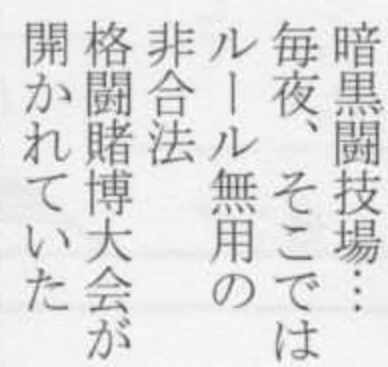 暗黒闘技場…
毎夜、そこでは
ルール無用の
非合法
格闘賭博大会が
開かれていた